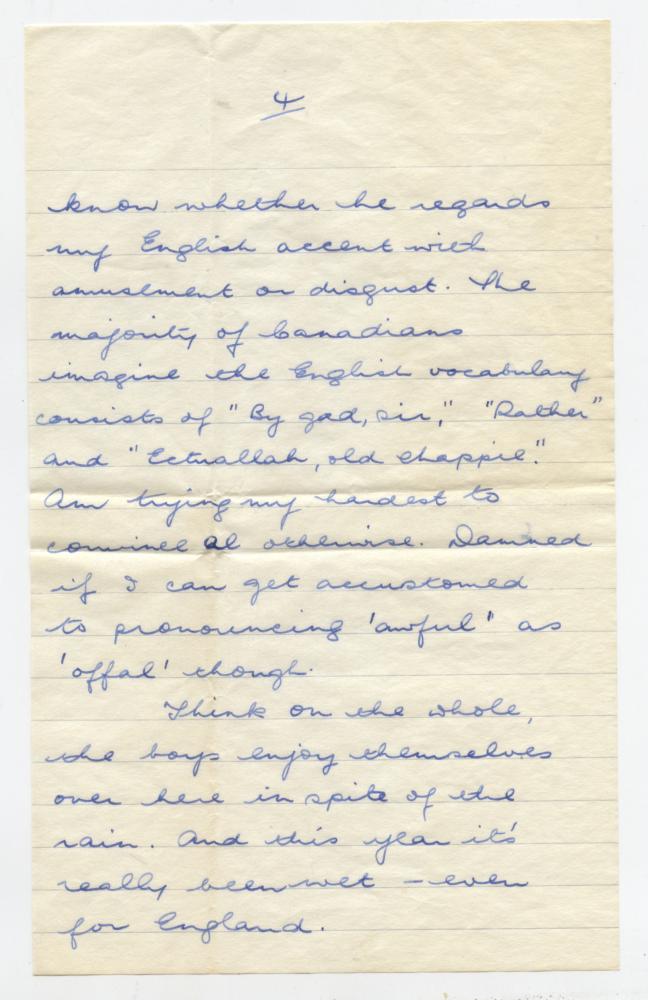 4
know whether he regards
my English accent with
amusement or disgust. The
majority of Canadians
imagine the English vocabulary
consists of "By gad, sir," "Rather"
and " Ectuallah, old chappie."
Am trying my hardest to
convince al otherwise. Damned
if I can get accustomed
to pronouncing 'awful" as
'offal' though.
Think on the whole,
the boys enjoy themselves
over here in spite of the
rain. And this year it's
really been wet – even
for England.